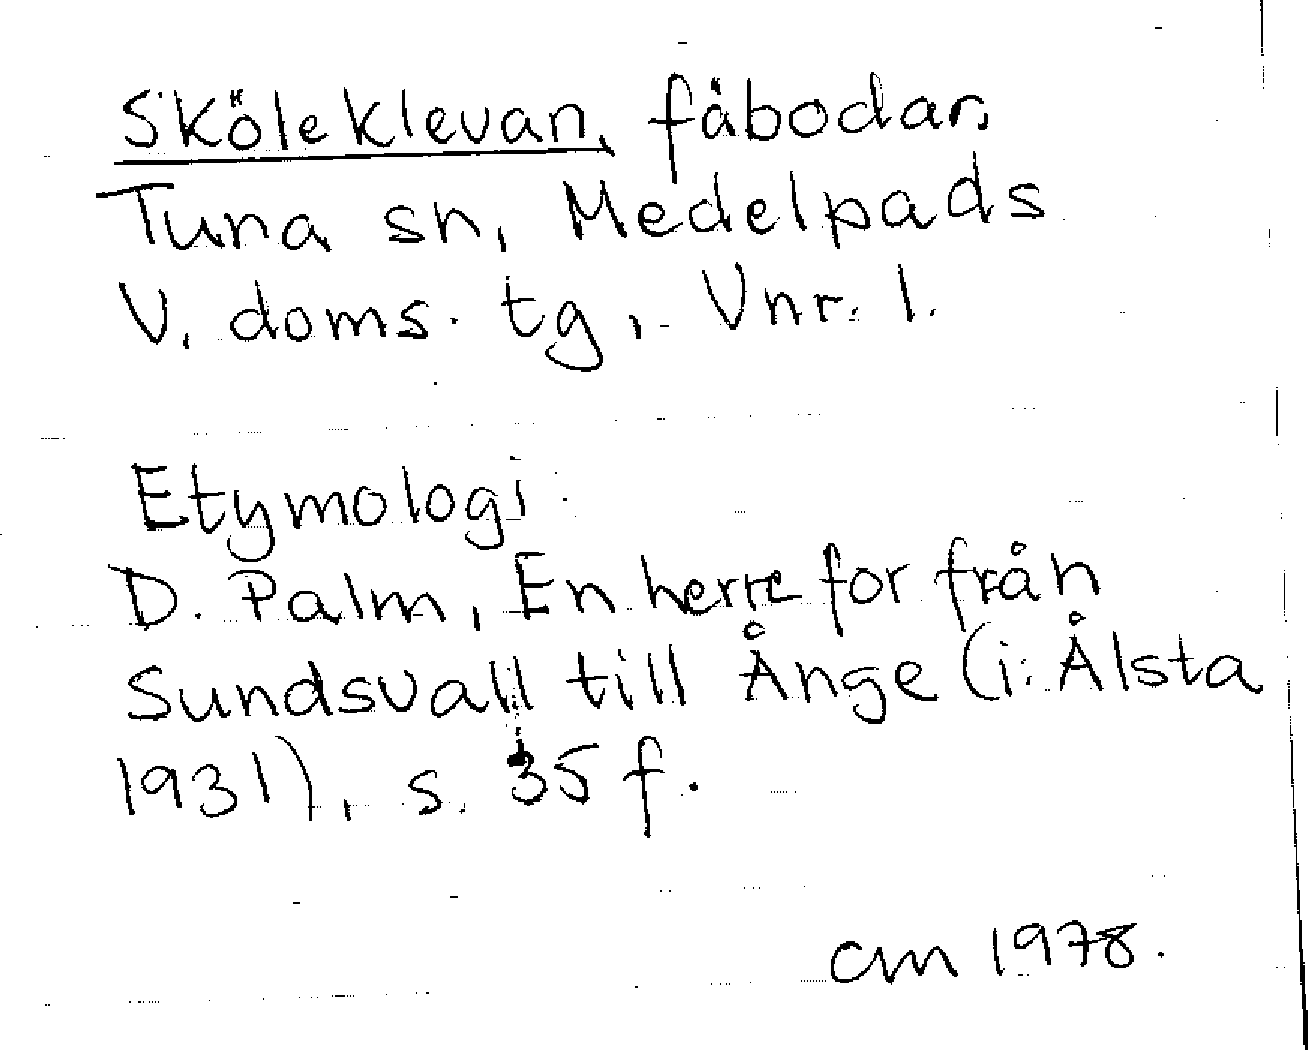 Sköleklevan, fåbodar,
Tuna sn, Medelpads
V. doms. tg, Vnr. 1.
Etymologi:
D. Palm, En herre for från
Sundsvall till Ånge (i: Ålsta
1931), s. 35 f.
cm 1978.